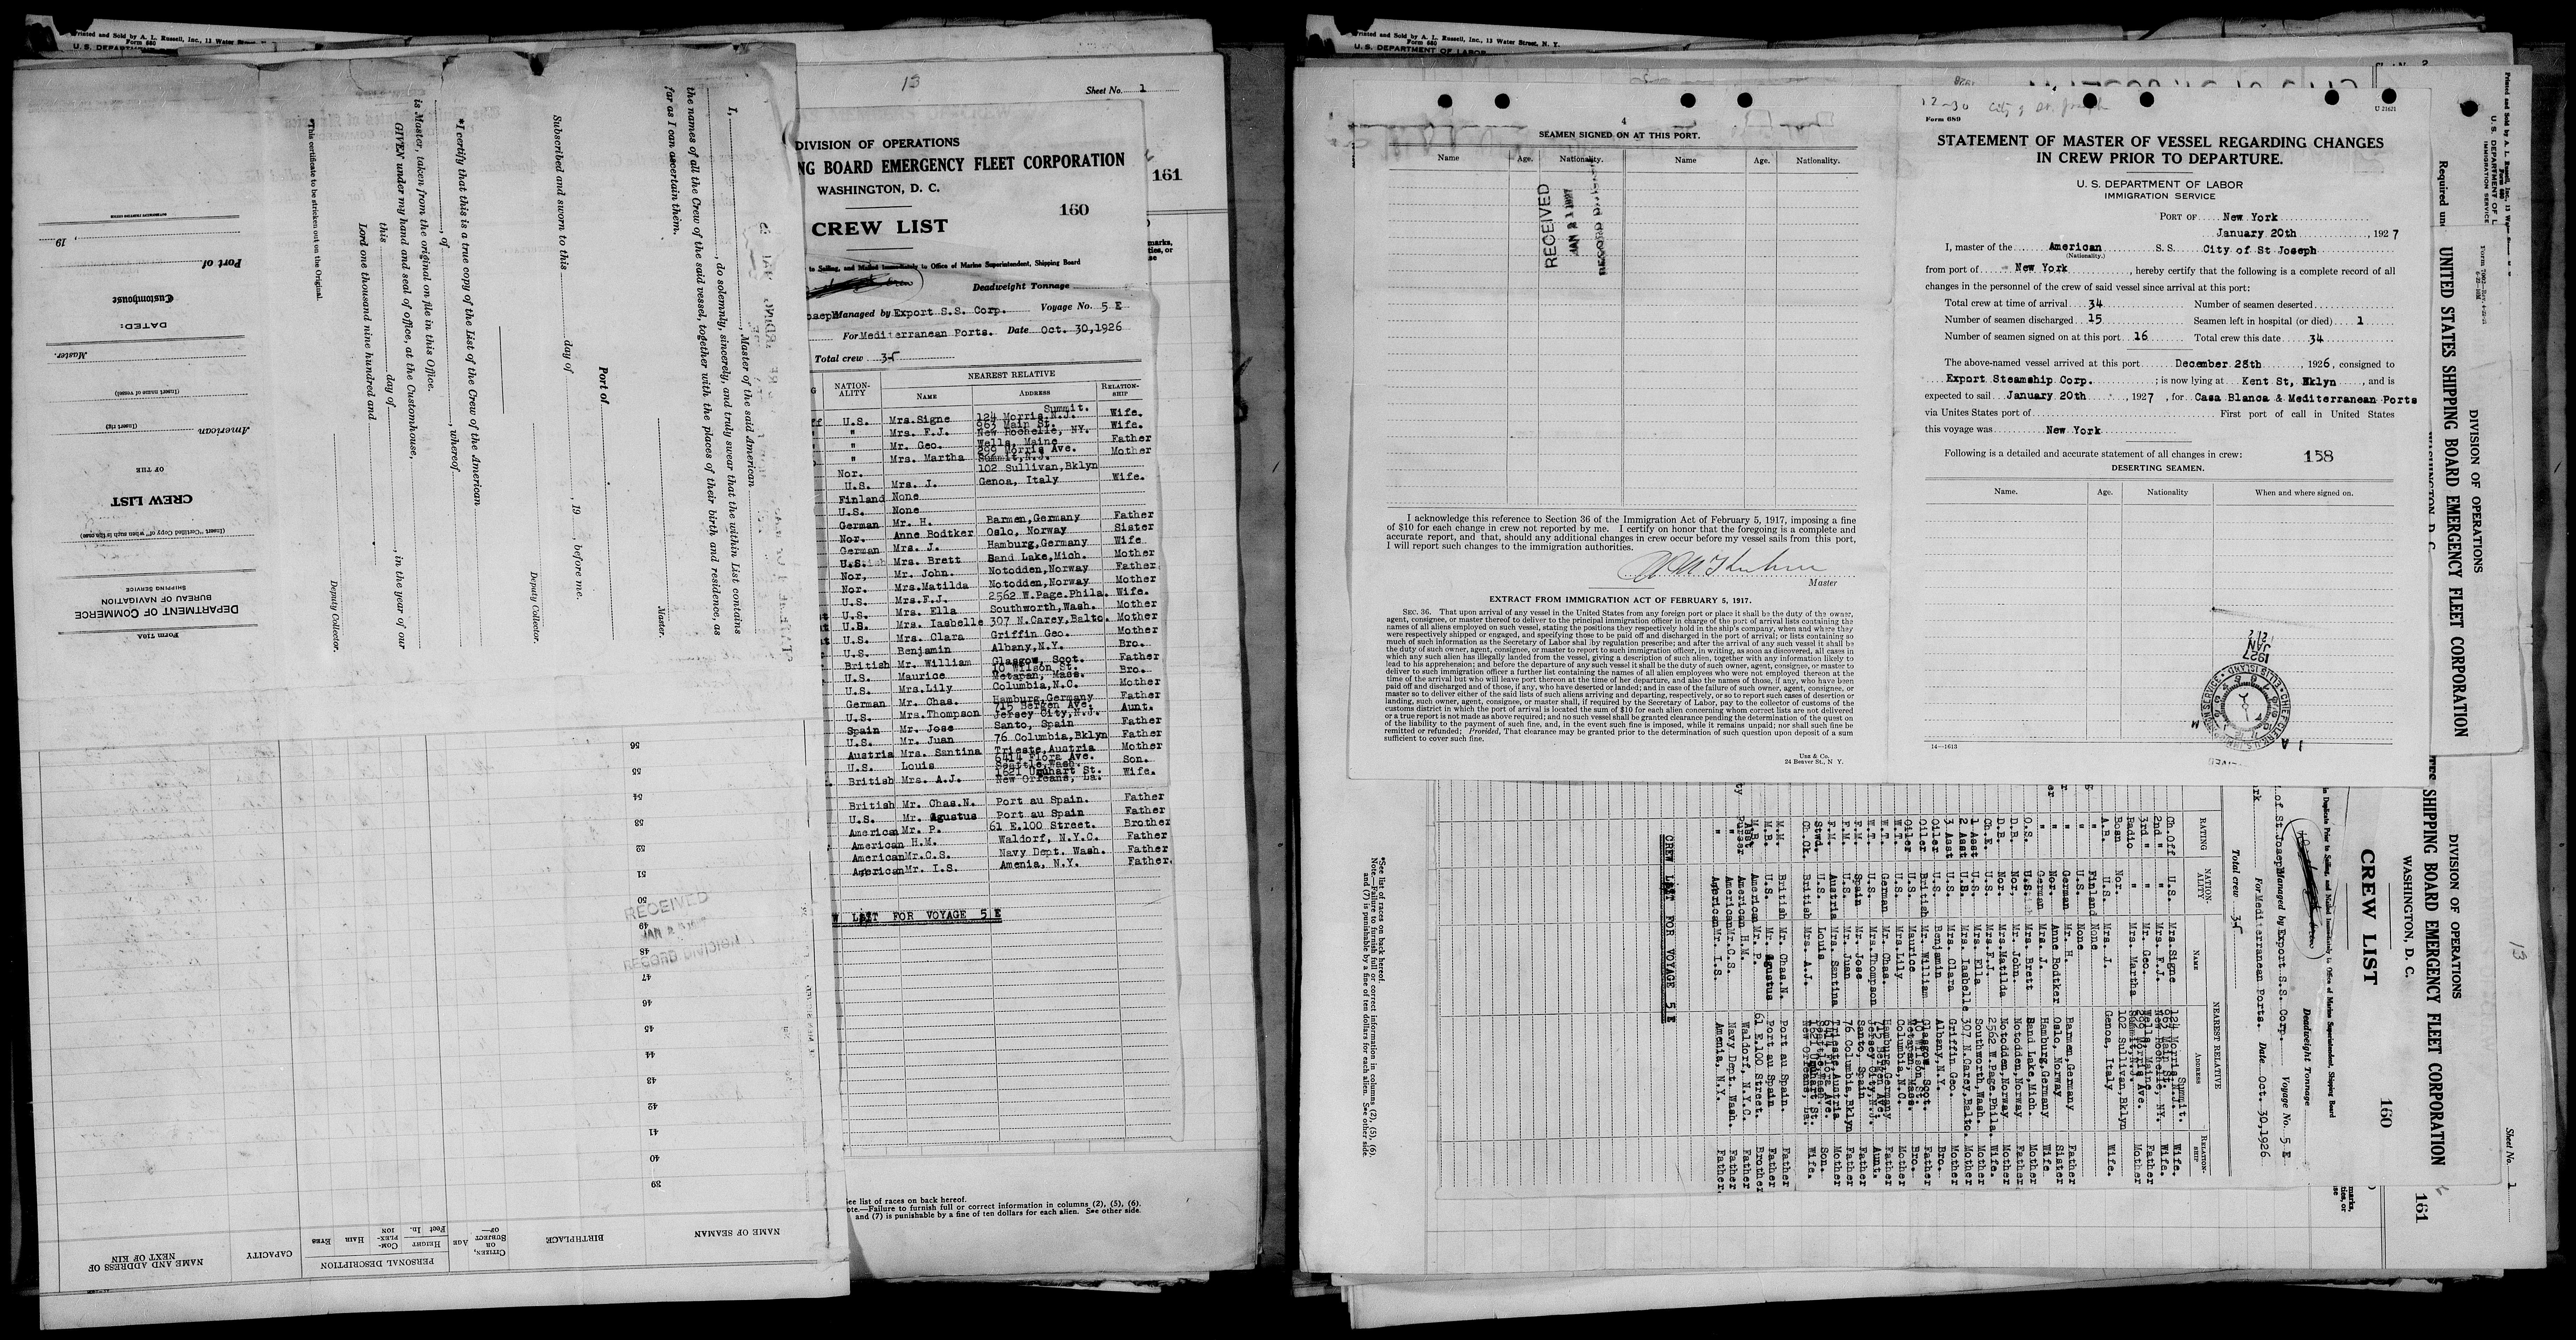 Printed and Sold by A. L. Russell, Inc., 13 Water
Form 680
U. S. DEPARTMENT
13
Sheet No. 1
DIVISION OF OPERATIONS
NG BOARD EMERGENCY FLEET CORPORATION
WASHINGTON, D. C.
161
160
CREW LIST
to Sailing, and Mailed Immediately to Office of Marine Superintendent, Shipping Board
Deadweight Tonnage
oseph Managed by Export S.S. Corp. Voyage No. 5 E
For Mediterranean Ports. Date Oct. 30,1926
Total crew 35
NATIONALITY NEAREST RELATIVE
NAME ADDRESS RELATIONSHIP
U.S. Mrs.Signe 124 Morris, N.J. Summit. Wife.
" Mrs. F.J. 963 Main St. New Rochelle, NY. Wife.
" Mr. Geo. Wells, Maine Father
" Mrs. Martha 299 Morris Ave. Summit, N.J. Mother
Nor. 102 Sullivan,Bklyn
U.S. Mrs. J. Genoa, Italy Wife.
Finland None
U.S. None
German Mr. H. Barmen,Germany Father
Nor. Anne Bodtker Oslo, Norway Sister
German Mrs. J. Hamburg,Germany Wife
U.S. Mrs. Brett Sand Lake,Mich. Mother
Nor, Mr. John. Notodden,Norway Father
Nor. Mrs.Matilda Notodden,Norway Mother
U.S. Mrs.F.J. 2562 W.Page.Phila. Wife.
U.S. Mrs. Ella Southworth,Wash. Mother
U.S. Mrs. Iasbelle 307 N.Carey,Balto. Mother
U.S. Mrs. Clara Griffin Geo. Mother
U.S. Benjamin Albany,N.Y. Bro.
British Mr. William Glasgow, Scot. Father
U.S. Maurice 10 Wilson St. Metapan, Mass. Bro.
U.S. Mrs.Lily Columbia,N.C. Mother
German Mr. Chas. Hamburg,Germany Father
U.S. Mrs.Thompson 715 Bergen Ave. Jersey City,N.J. Aunt.
Spain Mr. Jose Santo, Spain Father
U.S. Mr. Juan 76 Columbia,Bklyn Father
Austria Mrs. Santina Trieste,Austria Mother
U.S. Louis 6414 Flora Ave. Seattle,Wash. Son.
British Mrs. A.J. 1621 Urquhart St. New Orleans, La. Wife.
British Mr. Chas.N. Port au Spain. Father
U.S. Mr. Agustus Port au Spain Father
American Mr. P. 61 E.100 Street. Brother
American H.M. Waldorf, N.Y.C. Father
American Mr.C.S. Navy Dept. Wash. Father
American Mr. I.S. Amenia, N.Y. Father
W LAST FOR VOYAGE 5 E
See list of races on back hereof.
Note.—Failure to furnish full or correct information in columns (2), (5), (6),
and (7) is punishable by a fine of ten dollars for each alien. See other side.
I, , Master of the said American
, do solemnly, sincerely, and truly swear that the within List contains
the names of all the Crew of the said vessel, together with the places of their birth and residence, as
far as I can ascertain them.
Master.
Port of
Subscribed and sworn to this day of , 19 , before me.
Deputy Collector.
*I certify that this is a true copy of the List of the Crew of the American
, of , whereof
is Master, taken from the original on file in this Office.
GIVEN under my hand and seal of office, at the Customhouse,
this day of , in the year of our
Lord one thousand nine hundred and
Deputy Collector.
*This certificate to be stricken out on the Original.
Form 710A
DEPARTMENT OF COMMERCE
BUREAU OF NAVIGATION
SHIPPING SERVICE
(Insert "Certified Copy of," when such is the case)
CREW LIST
OF THE
American
(Insert rig)
(Insert name of vessel)
Master.
DATED:
Customhouse
Port of
, 19
RECEIVED
RECORD DIVISION
NAME OF SEAMAN
BIRTHPLACE
CITIZEN, OR SUBJECT OF—
AGE
PERSONAL DESCRIPTION
HEIGHT
Feet In.
COMPLEXION
HAIR
EYES
CAPACITY
NAME AND ADDRESS OF NEXT OF KIN
39
40
41
42
43
44
45
46
47
48
49
50
51
52
53
54
55
56
Printed and Sold by A. L. Russell, Inc., 13 Water Street, N. Y.
Form 680
U. S. DEPARTMENT OF LABOR
4
SEAMEN SIGNED ON AT THIS PORT.
Name Age. Nationality. Name Age. Nationality.
RECEIVED
I acknowledge this reference to Section 36 of the Immigration Act of February 5, 1917, imposing a fine
of $10 for each change in crew not reported by me. I certify on honor that the foregoing is a complete and
accurate report, and that, should any additional changes in crew occur before my vessel sails from this port,
I will report such changes to the immigration authorities.
Master
EXTRACT FROM IMMIGRATION ACT OF FEBRUARY 5, 1917.
SEC. 36. That upon arrival of any vessel in the United States from any foreign port or place it shall be the duty of the owner,
agent, consignee, or master thereof to deliver to the principal immigration officer in charge of the port of arrival lists containing the
names of all aliens employed on such vessel, stating the positions they respectively hold in the ship's company, when and where they
were respectively shipped or engaged, and specifying those to be paid off and discharged in the port of arrival; or lists containing so
much of such information as the Secretary of Labor shall by regulation prescribe; and after the arrival of any such vessel it shall be
the duty of such owner, agent, consignee, or master to report to such immigration officer, in writing, as soon as discovered, all cases in
which any such alien has illegally landed from the vessel, giving a description of such alien, together with any information likely to
lead to his apprehension; and before the departure of any such vessel it shall be the duty of such owner, agent, consignee, or master to
deliver to such immigration officer a further list containing the names of all alien employees who were not employed thereon at the
time of the arrival but who will leave port thereon at the time of her departure, and also the names of those, if any, who have been
paid off and discharged and of those, if any, who have deserted or landed; and in case of the failure of such owner, agent, consignee, or
master so to deliver either of the said lists of such aliens arriving and departing, respectively, or so to report such cases of desertion or
landing, such owner, agent, consignee, or master, shall, if required by the Secretary of Labor, pay to the collector of customs of the
customs district in which the port of arrival is located the sum of $10 for each alien concerning whom correct lists are not delivered
or a true report is not made as above required; and no such vessel shall be granted clearance pending the determination of the quest on
of the liability to the payment of such fine, and, in the event such fine is imposed, while it remains unpaid; nor shall such fine be
remitted or refunded; Provided, That clearance may be granted prior to the determination of such question upon deposit of a sum
sufficient to cover such fine.
Unz & Co.
24 Beaver St., N. Y.
12-30 City of St. Joseph
Form 689
U 21621
STATEMENT OF MASTER OF VESSEL REGARDING CHANGES
IN CREW PRIOR TO DEPARTURE.
U. S. DEPARTMENT OF LABOR
IMMIGRATION SERVICE
PORT OF New York
January 20th, 1927
I, master of the American S. S. City of St Joseph
(Nationality.)
from port of New York, hereby certify that the following is a complete record of all
changes in the personnel of the crew of said vessel since arrival at this port:
Total crew at time of arrival 34 Number of seamen deserted
Number of seamen discharged 15 Seamen left in hospital (or died) 1
Number of seamen signed on at this port 16 Total crew this date 34
The above-named vessel arrived at this port December 28th, 1926, consigned to
Export Steamship Corp.; is now lying at Kent St, Bklyn, and is
expected to sail January 20th, 1927, for Casa Blanca & Mediterranean Ports
via Unites States port of First port of call in United States
this voyage was New York
Following is a detailed and accurate statement of all changes in crew: 158
DESERTING SEAMEN.
Name. Age. Nationality When and where signed on.
1927
JAN
14—1613
DIVISION OF OPERATIONS
UNITED STATES SHIPPING BOARD EMERGENCY FLEET CORPORATION
Required un
DIVISION OF OPERATIONS
SHIPPING BOARD EMERGENCY FLEET CORPORATION
WASHINGTON, D. C.
CREW LIST
160
161
13
Sheet No. 1
in Duplicate Prior to Sailing, and Mailed Immediately to Office of Marine Superintendent, Shipping Board
Deadweight Tonnage
of St.Joseph Managed by Export S.S. Corp. Voyage No. 5 E
For Mediterranean Ports. Date Oct. 30,1926
Total crew 35
RATING NATIONALITY NAME ADDRESS RELATIONSHIP
NEAREST RELATIVE
Ch.Off U.S. Mrs.Signe 124 Morris, N.J. Summit. Wife.
2nd " " Mrs. F.J. 963 Main St. New Rochelle, NY. Wife.
3rd " " Mr. Geo. Wells, Maine Father
Radio " Mrs. Martha 299 Morris Ave. Summit, N.J. Mother
Bosn Nor. 102 Sullivan,Bklyn
A.B. U.S. Mrs. J. Genoa, Italy Wife.
" Finland None
" U.S. None
" German Mr. H. Barmen,Germany Father
" Nor. Anne Bodtker Oslo, Norway Sister
" German Mrs. J. Hamburg,Germany Wife
O.S. U.S. Mrs. Brett Sand Lake,Mich. Mother
D.B. Nor, Mr. John. Notodden,Norway Father
D.B. Nor. Mrs.Matilda Notodden,Norway Mother
Ch.E. U.S. Mrs.F.J. 2562 W.Page.Phila. Wife.
1 Asst U.S. Mrs. Ella Southworth,Wash. Mother
2 Asst U.S. Mrs. Iasbelle 307 N.Carey,Balto. Mother
3 Asst U.S. Mrs. Clara Griffin Geo. Mother
Oiler U.S. Benjamin Albany,N.Y. Bro.
Oiler British Mr. William Glasgow, Scot. Father
Oiler U.S. Maurice 10 Wilson St. Metapan, Mass. Bro.
W.T. U.S. Mrs.Lily Columbia,N.C. Mother
W.T. German Mr. Chas. Hamburg,Germany Father
W.T. U.S. Mrs.Thompson 715 Bergen Ave. Jersey City,N.J. Aunt.
F.M. Spain Mr. Jose Santo, Spain Father
F.M. U.S. Mr. Juan 76 Columbia,Bklyn Father
F.M. Austria Mrs. Santina Trieste,Austria Mother
Stwd. U.S. Louis 6414 Flora Ave. Seattle,Wash. Son.
Ch.Ck. British Mrs. A.J. 1621 Urquhart St. New Orleans, La. Wife.
M.M. British Mr. Chas.N. Port au Spain. Father
M.B. U.S. Mr. Agustus Port au Spain Father
M.B. American Mr. P. 61 E.100 Street. Brother
Asst Purser American H.M. Waldorf, N.Y.C. Father
" American Mr.C.S. Navy Dept. Wash. Father
" American Mr. I.S. Amenia, N.Y. Father
CREW LAST FOR VOYAGE 5 E
*See list of races on back hereof.
Note.—Failure to furnish full or correct information in columns (2), (5), (6),
and (7) is punishable by a fine of ten dollars for each alien. See other side.